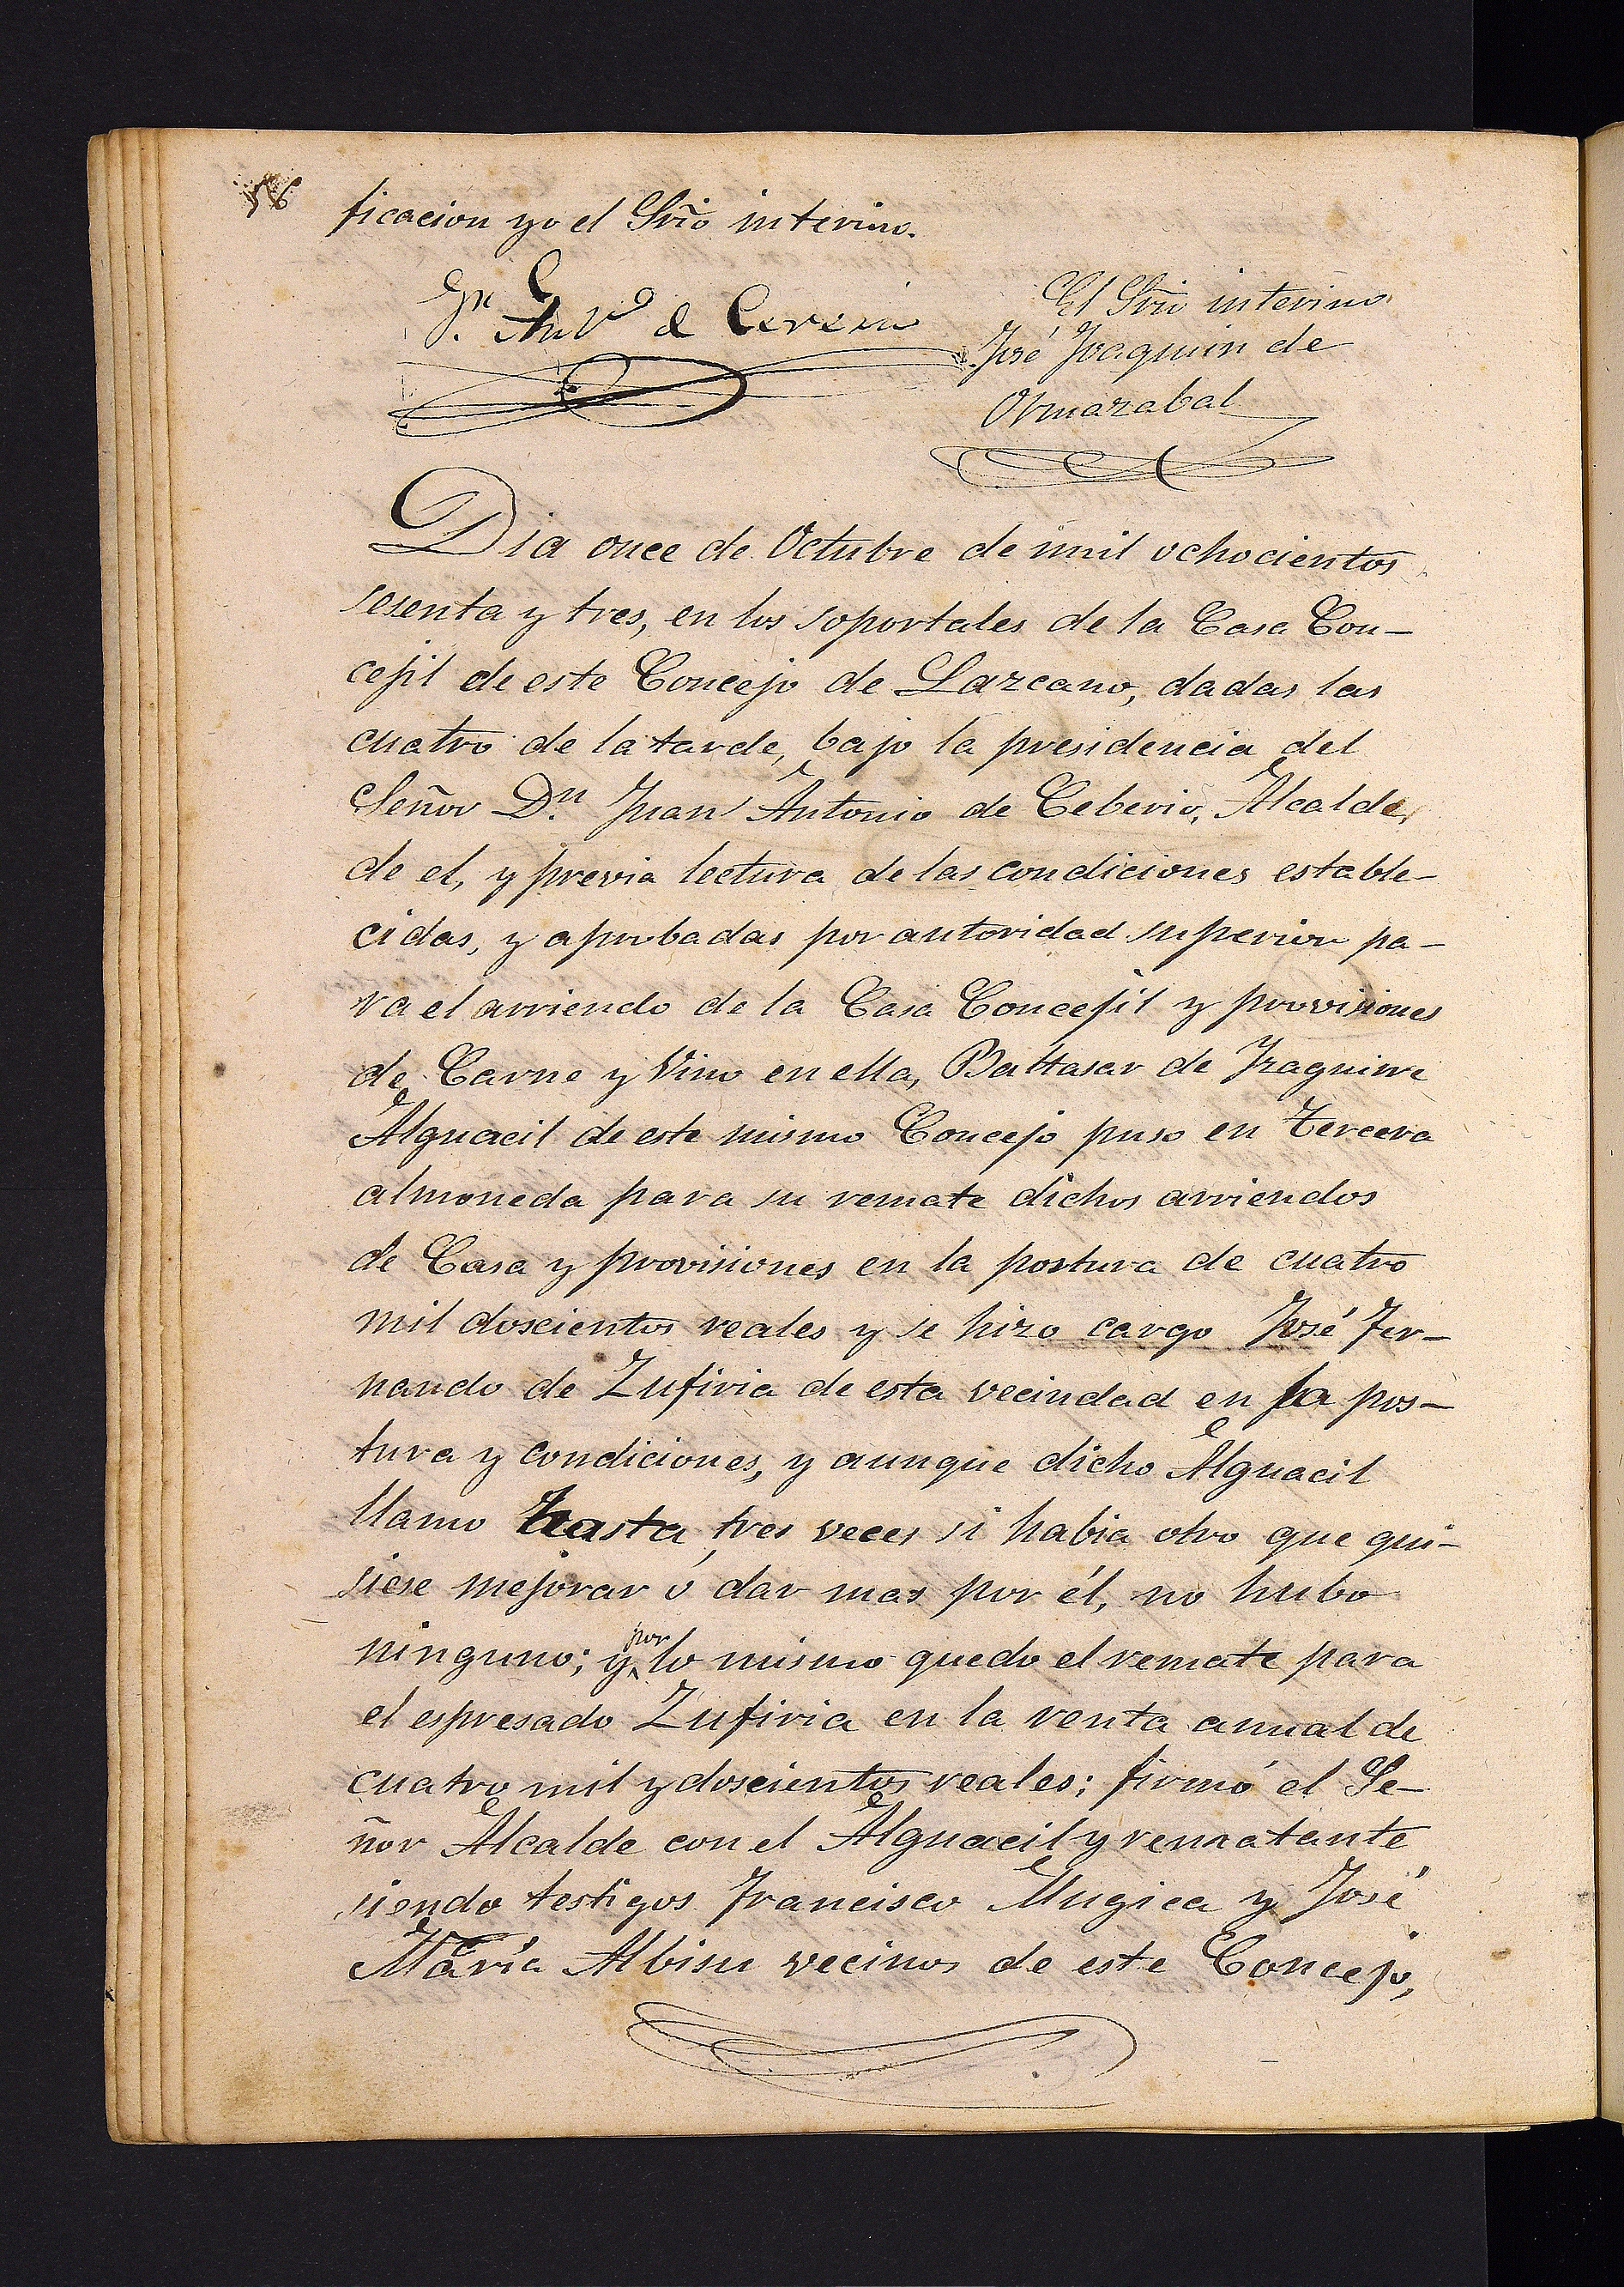 56
ficacion yo el Srio interino.
Jn. Anto de Ceverio
El Srio interino
José Joaquin de
Ormazabal
Dia once de Octubre de mil ochocientos
sesenta y tres, en los soportales de la Casa Con-
cejil de este Concejo de Lazcano, dadas las
cuatro de la tarde, bajo la presidencia del
Señor Dn. Juan Antonio de Ceberio, Alcalde,
de el, y previa lectura de las condiciones estable-
cidas, y aprobadas por autoridad superior pa-
ra el arriendo de la Casa Concejil y provisiones
de Carne y Vino en ella, Baltasar de Izaguirre
Alguacil de este mismo Concejo puso en tercera
almoneda para su remate dichos arriendos
de Casa y provisiones en la postura de cuatro
mil doscientos reales y se hizo cargo José Fer-
nando de Zufiria de esta vecindad en la pos-
tura y condiciones, y aunque dicho Alguacil
llamo hasta tres veces si habia otro que qui-
siese mejorar ó dar mas por él, no hubo
ninguno; y por lo mismo quedo el remate para
el espresado Zufiria en la renta anual de
cuatro mil y doscientos reales; firmó el Se-
ñor Alcalde con el Alguacil y rematante
siendo testigos Francisco Mugica y José
María Albisu vecinos de este Concejo,